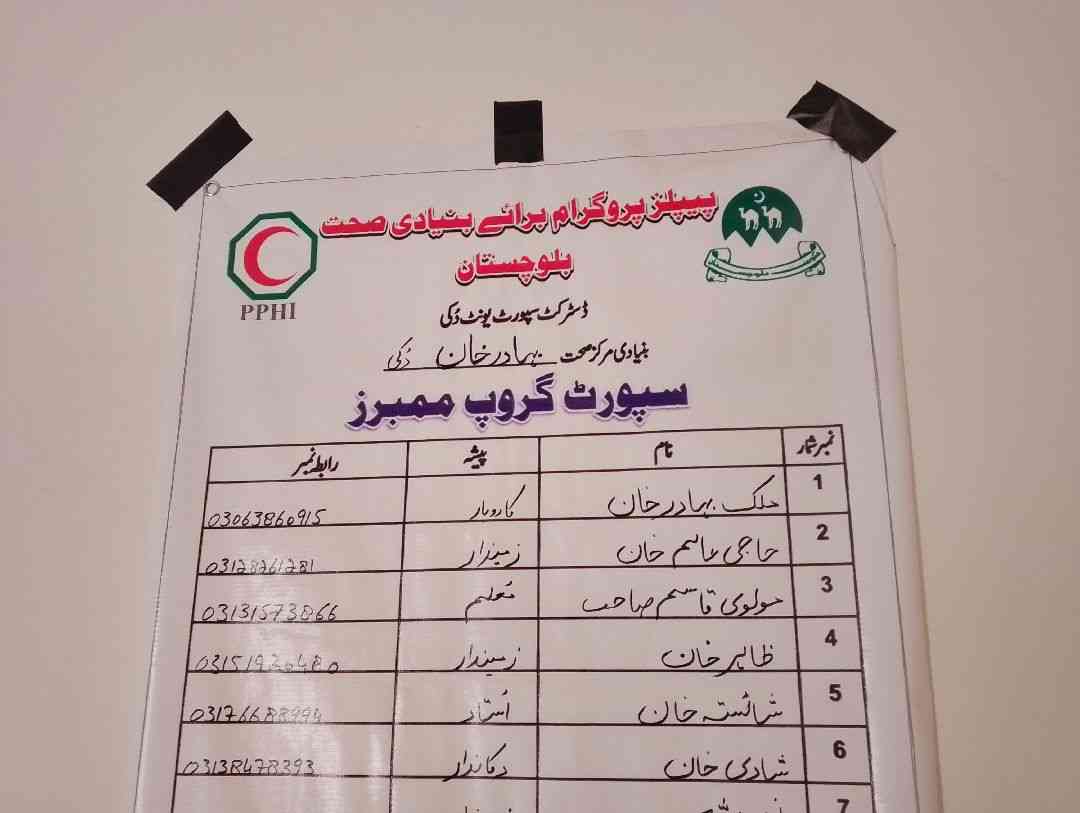 پیپلز پروگرام برائے بنیادی صحت
بلوچستان
PPHI
ڈسٹرکٹ سپورٹ یونٹ دُکی
بنیادی مرکز صحت بہادر خان دُکی
سپورٹ گروپ ممبرز
نمبر شمار نام پیشہ رابطہ نمبر
1 ملک بہادر خان کاروبار 03063860915
2 حاجی عاسم خان زمیندار 03128761281
3 مولوی قاسم صاحب معلم 03131573866
4 ظاہر خان زمیندار
5 شائستہ خان اُستاد 03176688994
6 شادی خان دکاندار 03138478393
7